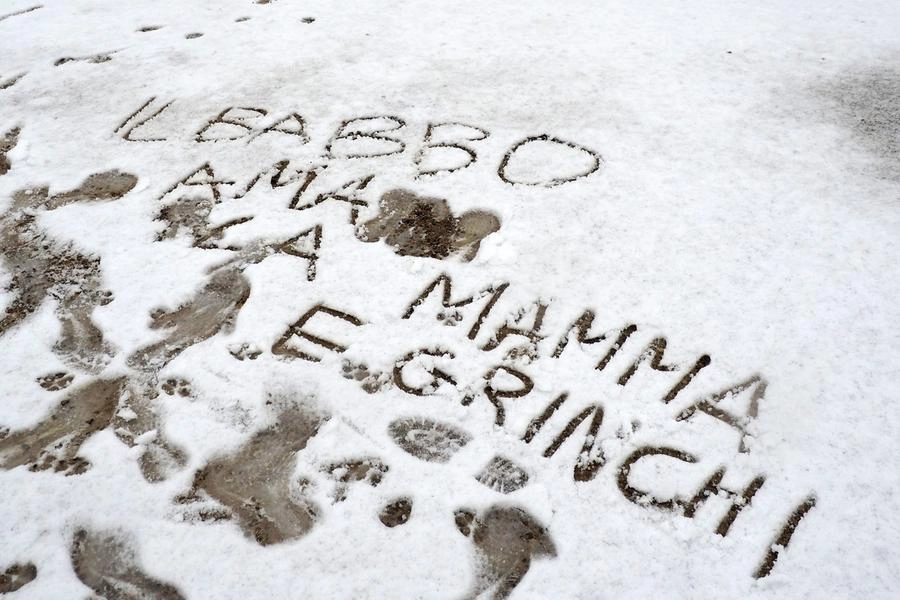 IL BABBO
AMA
LA MAMMA
E GRINCHI